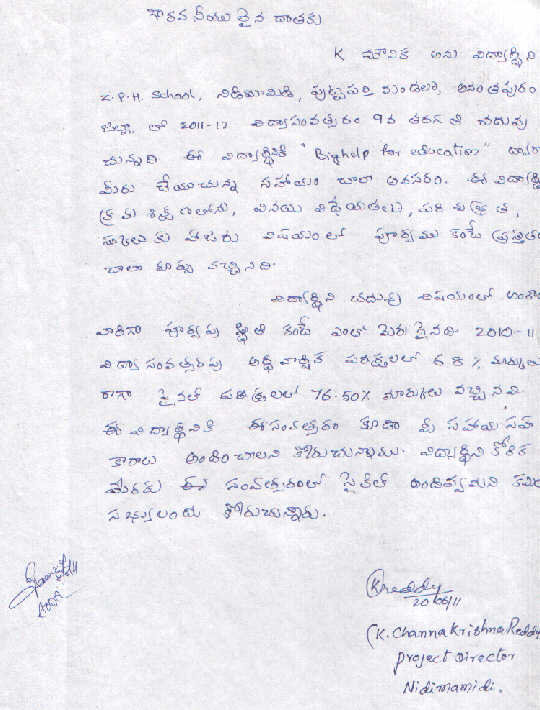 గౌరవనీయులైన దాతకు
K మౌనిక అను విద్యార్థిని
Z.P.H. School, నిడిమామిడి, పుట్టపర్తి మండలం, అనంతపురం
జిల్లా లో 2011-12 విద్యాసంవత్సరం 9వ తరగతి చదువు
చున్నది ఈ విద్యార్థినికి "Bighelp for education" ద్వారా
మీరు చేయుచున్న సహాయం చాలా అవసరం. ఈ విద్యార్థిని
క్రమశిక్షణలోను, వినయ విధేయతలు, పరిశుభ్రత,
స్కూలుకు హాజరు విషయంలో పూర్వము కంటే ప్రస్తుతం
చాలా మార్పు వచ్చినది.
విద్యార్థిని చదువు విషయంలో
పూర్వపు స్థితి కంటే ఎంతో మెరుగైనది. 2010-11
విద్యా సంవత్సరపు అర్ధ వార్షిక పరీక్షలలో 68% మార్కులు
రాగా ఫైనల్ పరీక్షలలో 76.50% మార్కులు వచ్చినవి.
ఈ విద్యార్థినికి ఈ సంవత్సరం కూడా మీ సహాయ సహ
కారాలు అందించాలని కోరుచున్నాము. విద్యార్థిని కోరిక
మేరకు ఈ సంవత్సరంలో సైకిల్ కమిటీ
సభ్యులందరు కోరుచున్నారు.
Kreddy
20/06/11
(K. Channa Krishna Reddy
Project Director
Nidimamidi.